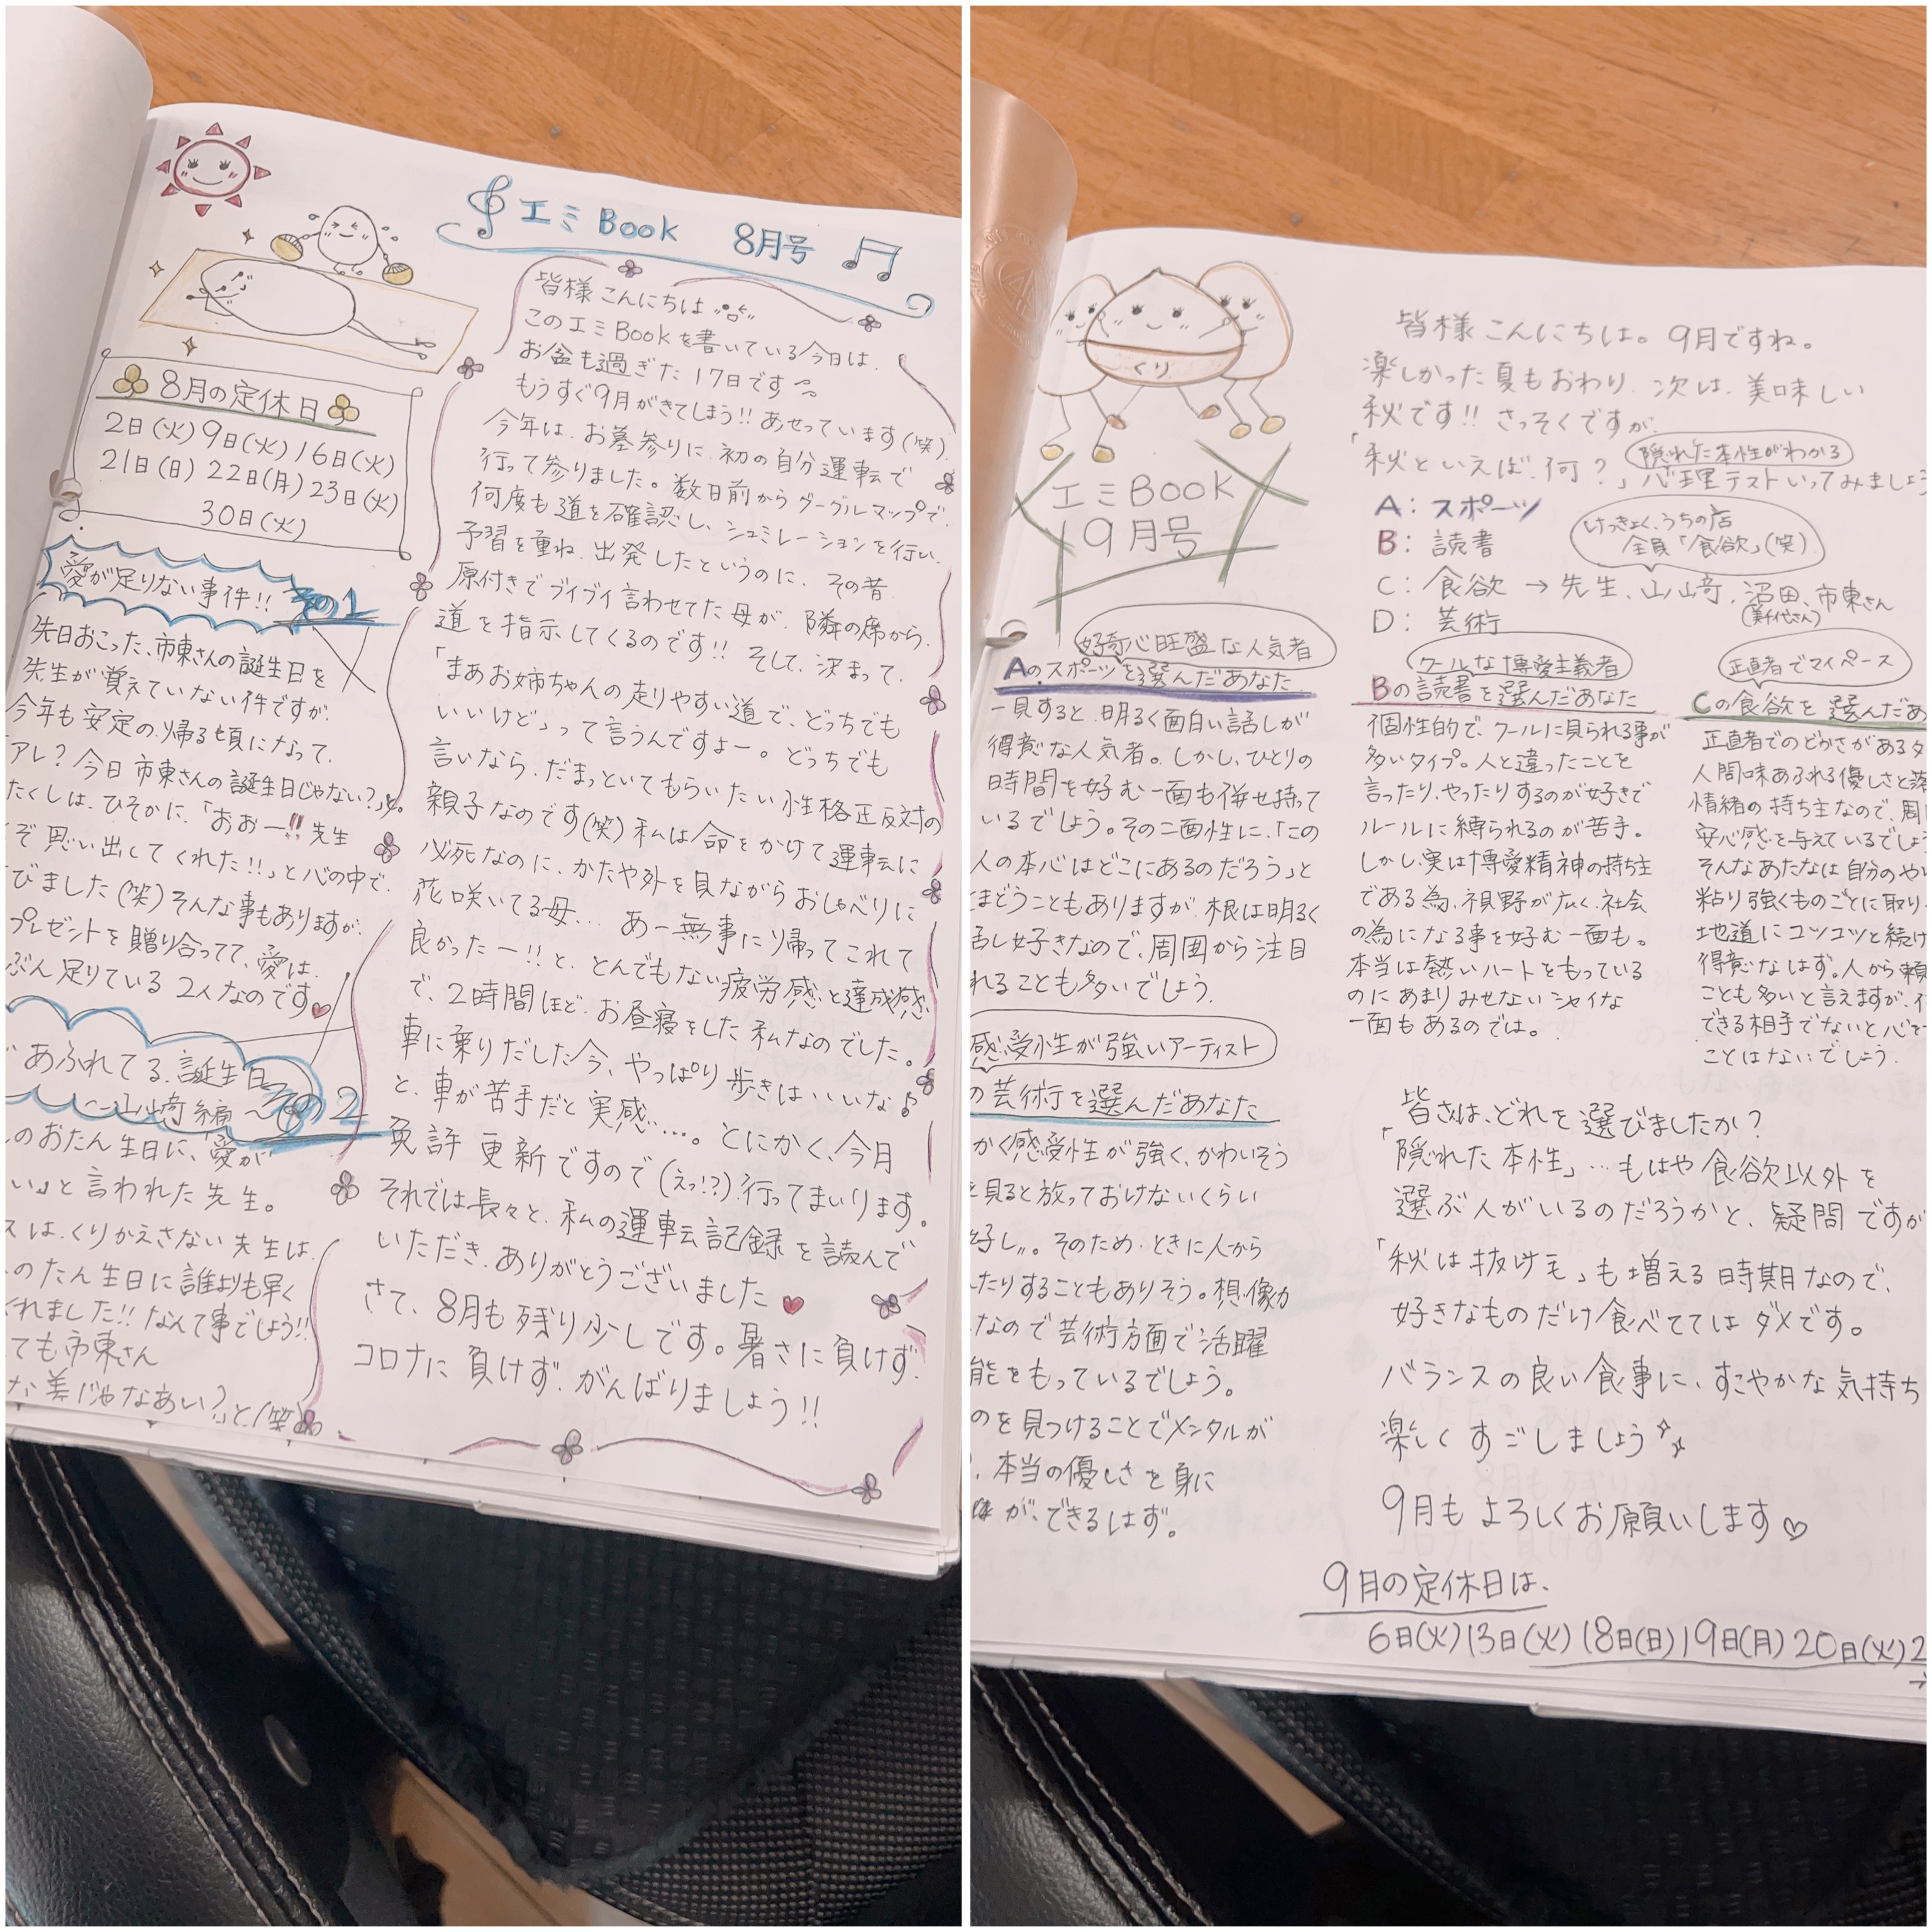 エミBook 8月号
8月の定休日
2日(火)9日(火)16日(火)
21日(日)22日(月)23日(火)
30日(火)
愛が足りない事件!! その1
先日おこった、市東さんの誕生日を
先生が覚えていない件ですが、
今年も安定の、帰る頃になって、
アレ?今日市東さんの誕生日じゃない?」
たくしは、ひそかに、「おおー!!先生
ぞ思い出してくれた!!」と心の中で、
びました(笑)そんな事もありますが、
プレゼントを贈り合ってて、愛は、
ぶん足りている2人なのです
あふれてる誕生日
山﨑編~その2
のおたん生日に、「愛が
い」と言われた先生。
スは、くりかえさない先生は、
のたん生日に誰よりも早く
くれました!!なんて事でしょう!!
ても市東さん
な差じゃなあい?」と(笑)
皆様こんにちは
このエミBookを書いている今日は、
お盆も過ぎた17日です
もうすぐ9月がきてしまう!!あせっています(笑)
今年は、お墓参りに、初の自分運転で
行って参りました。数日前からグーグルマップで、
何度も道を確認し、シュミレーションを行い、
予習を重ね、出発したというのに、その昔
原付きでブイブイ言わせてた母が、隣の席から、
道を指示してくるのです!!そして、決まって、
「まあお姉ちゃんの走りやすい道で、どっちでも
いいけど」って言うんですよー。どっちでも
言いなら、だまっといてもらいたい性格正反対の
親子なのです(笑)私は命をかけて運転に
必死なのに、かたや外を見ながらおしゃべりに
花咲いてる母… あー無事に帰ってこれて
良かったー!!と、とんでもない疲労感と達成感
で、2時間ほど、お昼寝をした私なのでした。
車に乗りだした今、やっぱり歩きはいいな♪
と、車が苦手だと実感…。とにかく、今月
免許更新ですので(えっ!?)行ってまいります。
それでは長々と、私の運転記録を読んで
いただき、ありがとうございました
さて、8月も残り少しです。暑さに負けず、
コロナに負けず、がんばりましょう!!
くり
エミBook
9月号
皆様こんにちは。9月ですね。
楽しかった夏もおわり、次は、美味しい
秋です!!さっそくですが、
隠れた本性がわかる
「秋といえば、何?」心理テストいってみましょ
A:スポーツ
B:読書
けっきょく、うちの店
全員「食欲」(笑)
C:食欲→先生、山﨑、沼田、市東さん
D:芸術
好奇心旺盛な人気者
Aのスポーツを選んだあなた
一見すると、明るく面白い話しが
得意な人気者。しかし、ひとりの
時間を好む一面も併せ持って
いるでしょう。その二面性に、「この
人の本心はどこにあるのだろう」と
まどうこともありますが、根は明るく
話し好きなので、周囲から注目
れることも多いでしょう。
クールな博愛主義者
Bの読書を選んだあなた
個性的で、クールに見られる事が
多いタイプ。人と違ったことを
言ったり、やったりするのが好きで
ルールに縛られるのが苦手。
しかし、実は博愛精神の持ち主
である為、視野が広く、社会
の為になる事を好む一面も。
本当は熱いハートをもっている
のにあまりみせないシャイな
一面もあるのでは。
正直者でマイペース
Cの食欲を選んだあ
正直者でのどかさがあるタ
人間味あふれる優しさと落
情緒の持ち主なので、周
安心感を与えているでしょ
そんなあたなは自分のや
粘り強くものごとに取り
地道にコツコツと続け
得意なはず。人から頼
ことも多いと言えますが、
できる相手でないと心を
ことはないでしょう。
感受性が強いアーティスト
の芸術を選んだあなた
かく感受性が強く、かわいそう
を見ると放っておけないくらい
好し〃。そのため、ときに人から
たりすることもありそう。想像力
なので芸術方面で活躍
能をもっているでしょう。
のを見つけることでメンタルが
、本当の優しさを身に
が、できるはず。
皆さんは、どれを選びましたか?
「隠れた本性」…もはや食欲以外を
選ぶ人がいるのだろうかと、疑問ですが
「秋は抜け毛」も増える時期なので、
好きなものだけ食べてては ダメです。
バランスの良い食事に、すこやかな気持ち
楽しくすごしましょう
9月もよろしくお願いします♡
9月の定休日は、
6日(火)13日(火)18日(日)19日(月)20日(火)2